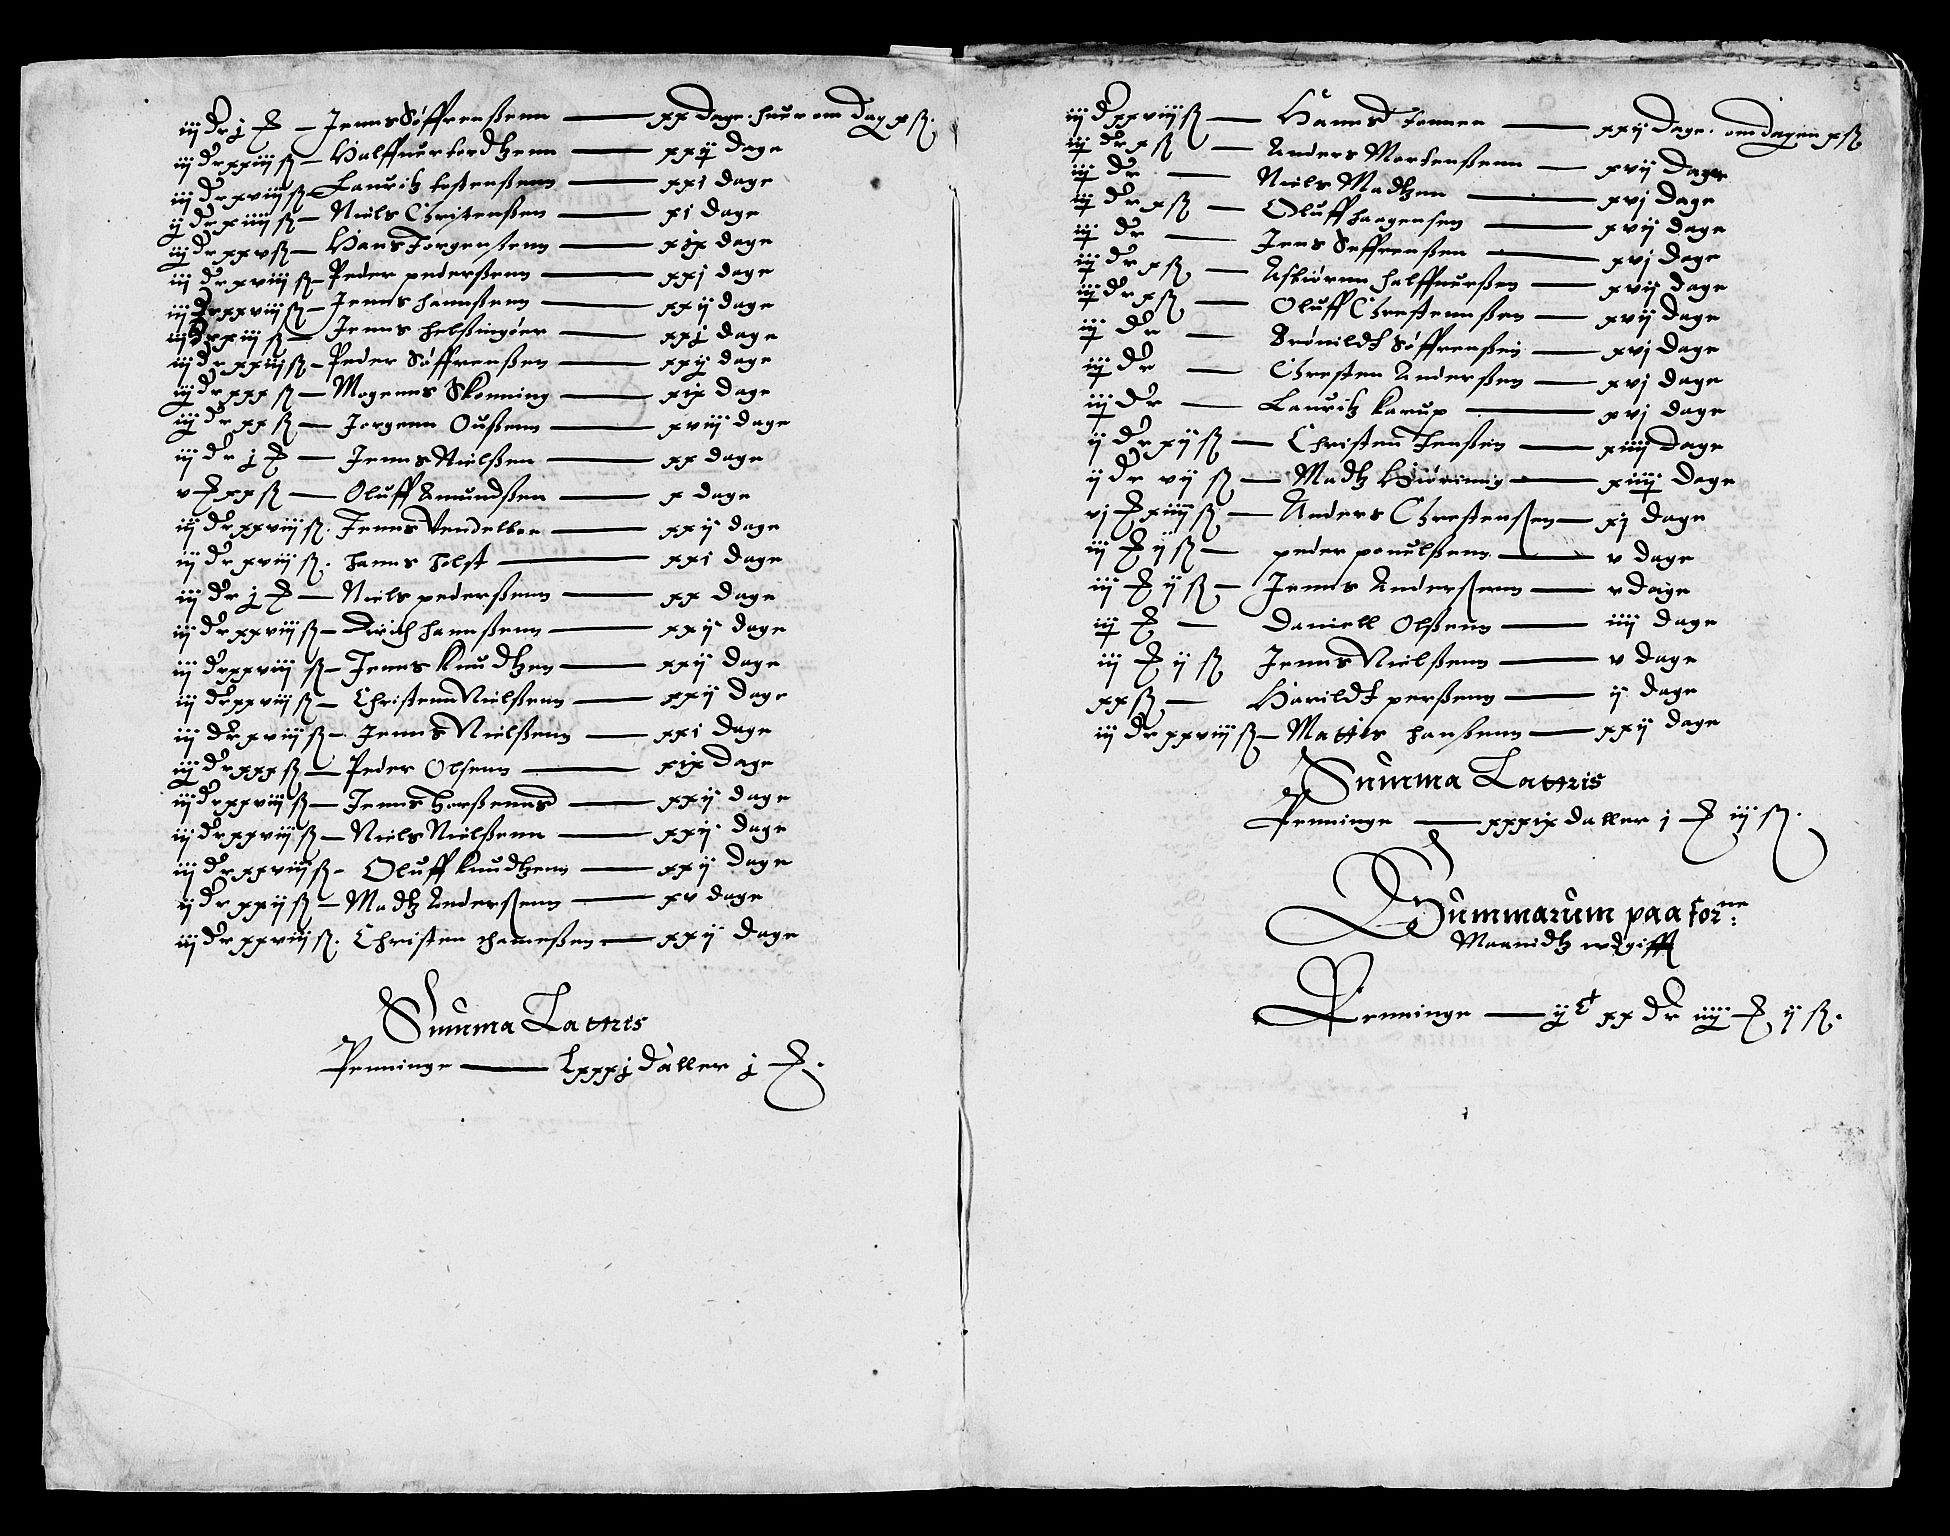 iij dr j ₰ — Jenns Søffrenßenn — xx dage. huer om dag x ß.
iij dr xxiij ß — Halffuer tordtzenn — xxij dage
iij dr xviij ß — Lauritz tostenßenn — xxi dage
ij dr xiiij ß — Niels Chritenßenn — xi dage
iij dr xxv ß — Hans Jørgenßenn — xix dage
iij dr xviij ß — Peder pederßenn — xxj dage
iij dr xxviij ß — Jenns hannßenn — xxij dage
iij dr xviij ß — Jenns helßingøer — xxj dage
iij dr xxviij ß — Peder Søffrenßen — xxij dage
iij dr xxx ß — Mogenns Skonning — xix dage
iij dr xx ß — Jørgenn Oußenn — xviij dage
iij dr j ₰ — Jenns Nielßen — xx dage
v ₰ xx ß — Oluff Amundßen — x dage
iij dr xxviij ß. Jenns Vendelboe — xxij dage
iij dr xviij ß. hanns holst — xxi dage
iij dr j ₰ — Niels pederßenn — xx dage
iij dr xxviij ß — Dirich hannßenn — xxij dage
iij dr xxviij ß — Jenns knudtzen — xxij dage
iij dr xxviij ß — Christenn Nielßenn — xxij dage
iij dr xviij ß — Jenns Nielßenn — xxi dage
iij dr xxx ß — Peder Olsenn — xix dage
iij dr xxviij ß — Jenns — xxij dage
iij dr xxviij ß — Niels Nielßenn — xxij dage
iij dr xxviij ß — Oluff knudtzenn — xxij dage
ij dr xxij ß — Madtz Anderßenn — xv dage
iij dr xxviij ß. Christen — xxij dage
Summa Lateris
Penninge — Lxxxj daller j ₰.
5
iij dr xxviij ß — Hanns — xxij dage. om dagen x ß
iij dr x ß — Anders Mortenßenn — xvij dage
iij dr — Niels Madtzen — xvj dage
iij dr x ß — Oluff haagensen — xvij dage
iij dr — Jens Søffrenßen — xvj dage
iij dr x ß — Asbiørnn halffuerßen — xvij dage
iij dr x ß — Oluff Christennßen — xvij dage
iij dr — Søffrenßen — xvj dage
iij dr — Chresten Anderßen — xvj dage
iij dr — Lauritz karup — xvj dage
ij dr xij ß — Christen Jenßen — xiiij dage
ij dr vij ß — Madtz — xiiij dage
vj ₰ xiiij ß — Anders Chrestenßen — xj dage
iij ₰ ij ß — peder pouelßenn — v dage
iij ₰ ij ß — Jenns Anderßenn — v dage
iij ₰ — Daniell Olßenn — iiij dage
iij ₰ ij ß Jenns Nielßenn — v dage
xx ß — Harildt perßenn — ij dage
iij dr xxviij ß — Mattis hanßenn — xxij dage
Summa Lateris
Penninge — xxxix daller j ₰ iij ß.
Summarum paa for:ne
Maanidtz wdgifft
Penninge — ijC xx dr iiij ₰ ij ß.